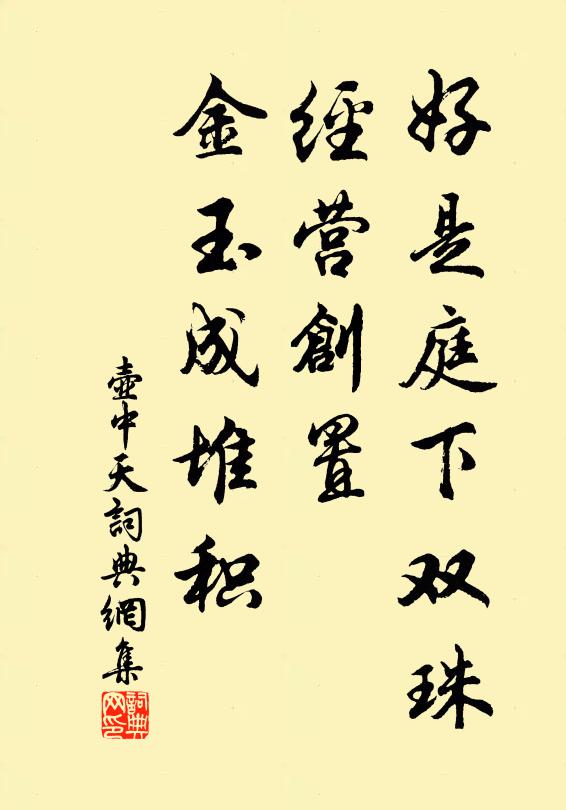 好是庭下双珠
經营創置
金玉成堆积
壺中天詞典網集
詞典
网印